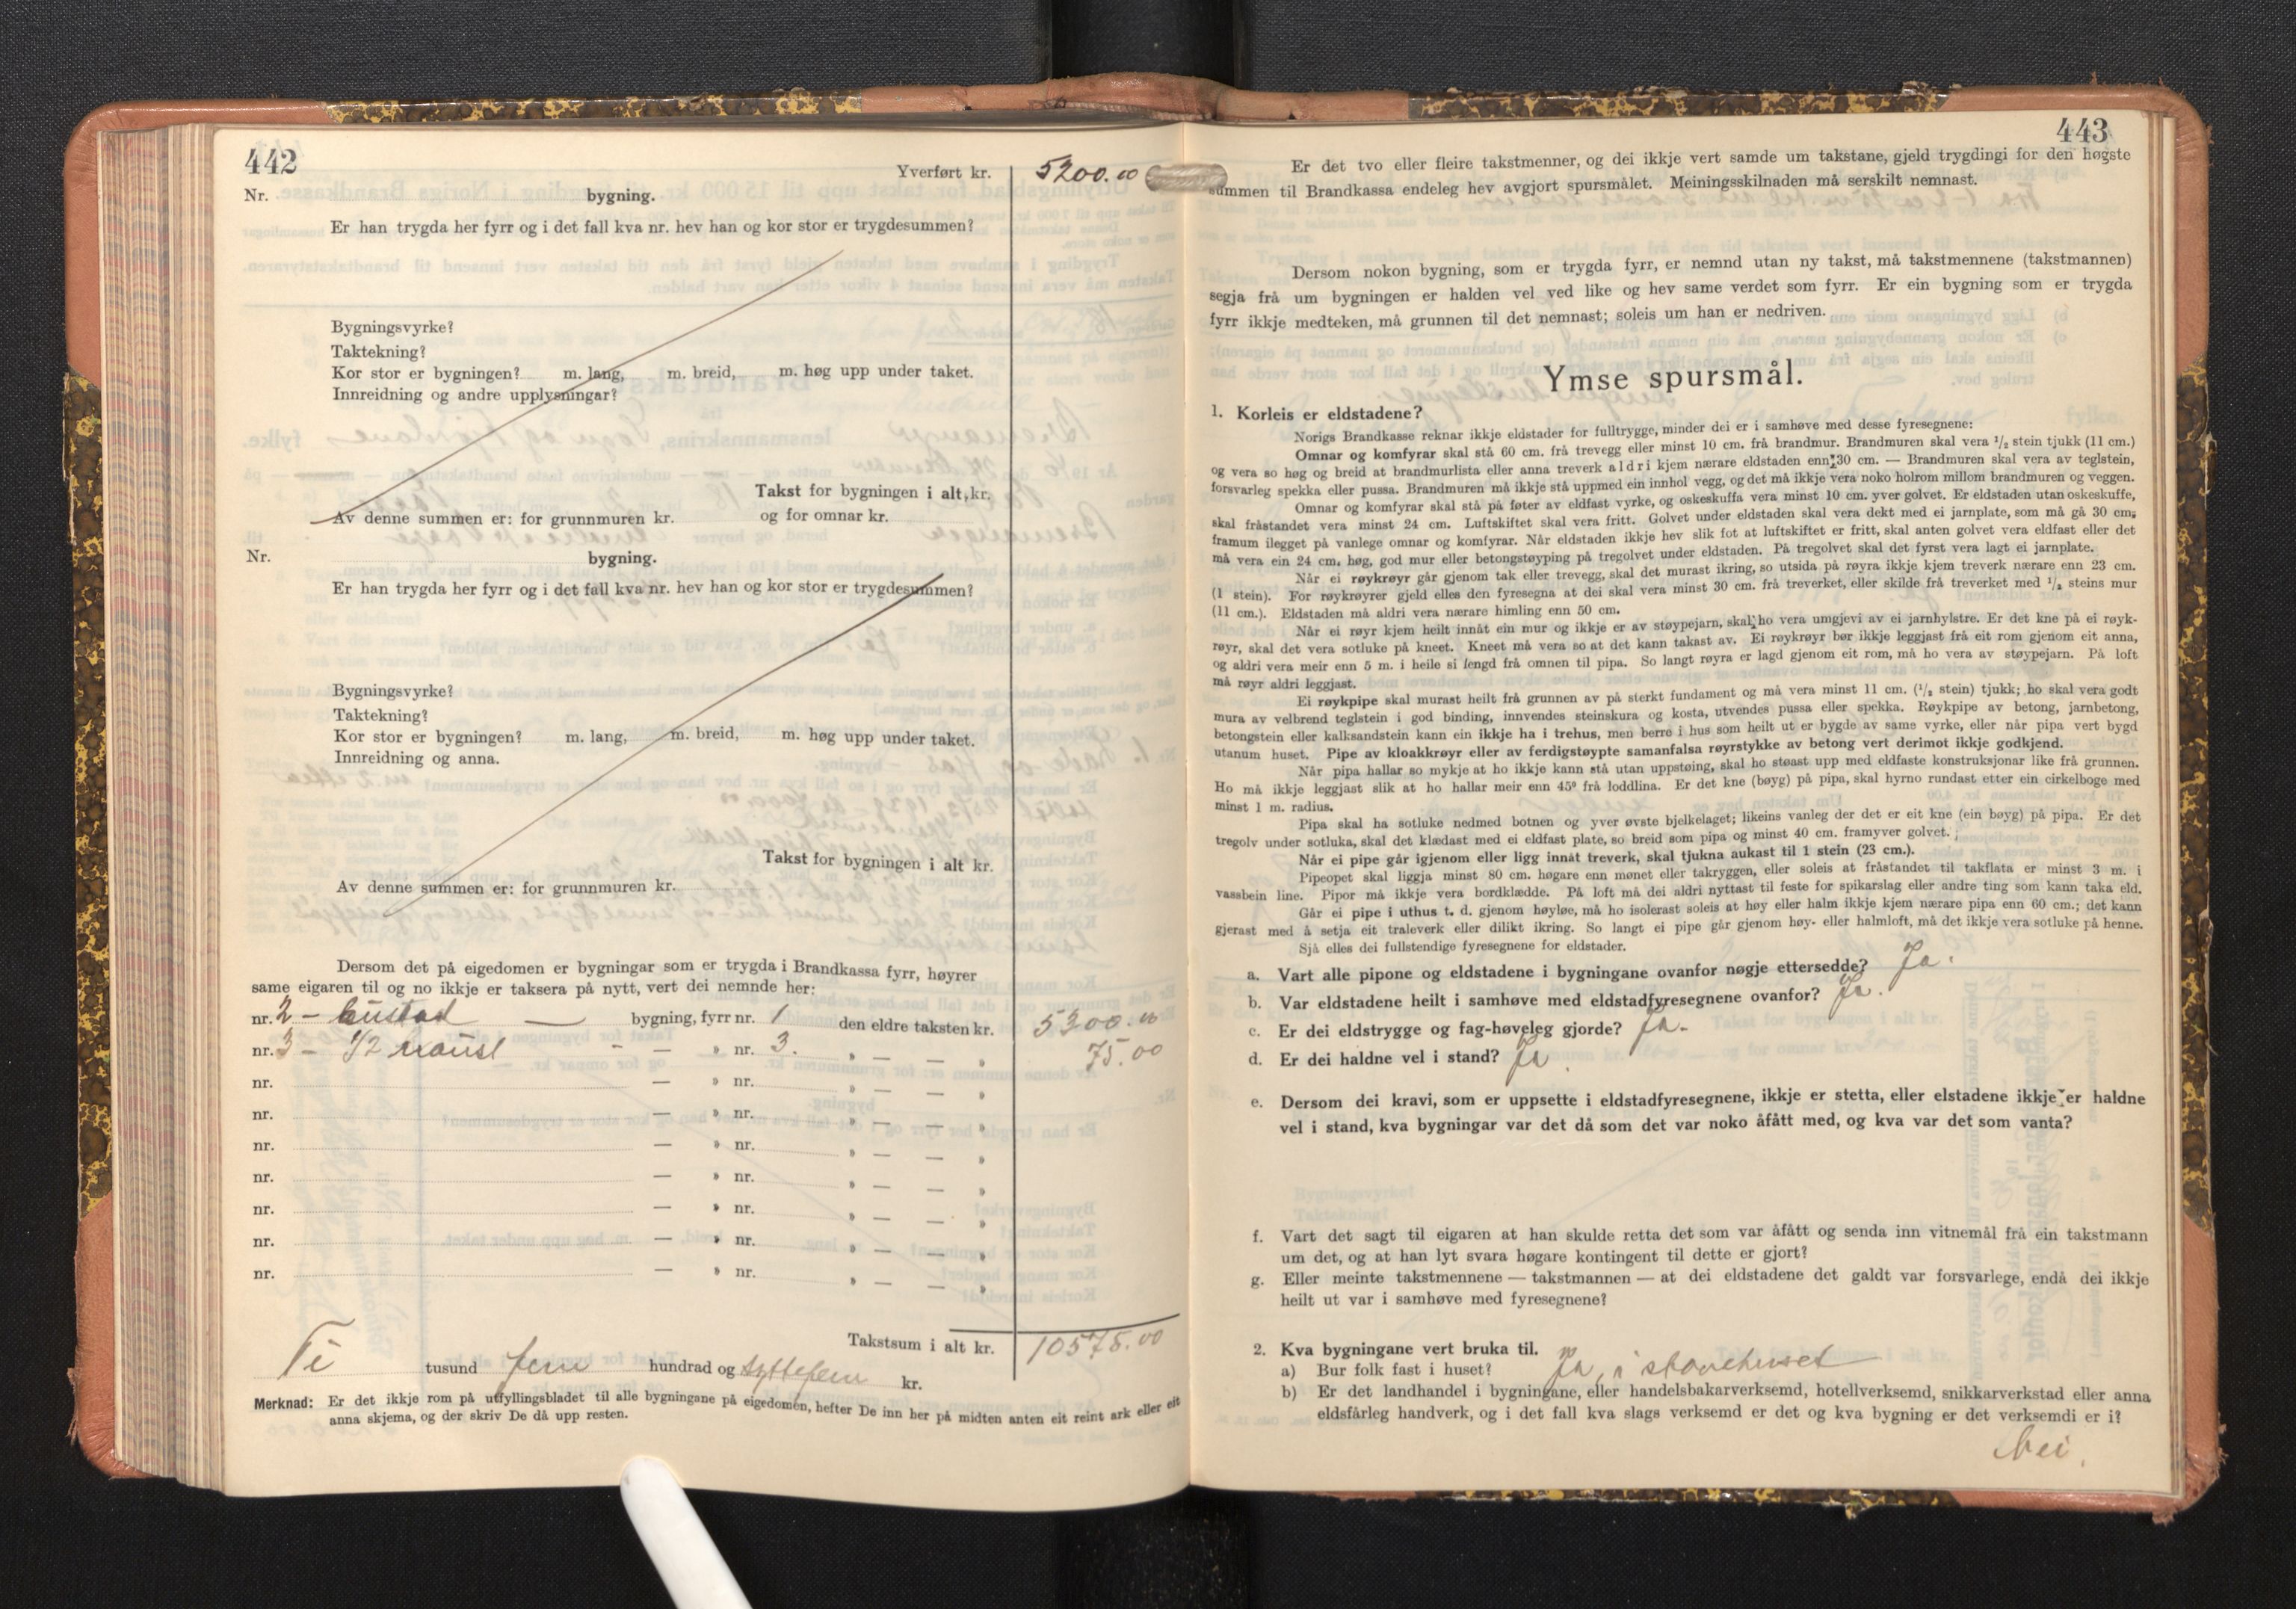 442
Yverført kr. 5200.00
Nr. bygning.
Er han trygda her fyrr og i det fall kva nr. hev han og kor stor er trygdesummen?
Bygningsvyrke?
Taktekning?
Kor stor er bygningen? m. lang, m. breid, m. høg upp under taket.
Innreidning og andre upplysningar?
Takst for bygningen i alt, kr.
Av denne summen er: for grunnmuren kr. og for omnar kr.
Nr. bygning.
Er han trygda her fyrr og i det fall kva nr. hev han og kor stor er trygdesummen?
Bygningsvyrke?
Taktekning?
Kor stor er bygningen? m. lang, m. breid, m. høg upp under taket.
Innreidning og anna.
Takst for bygningen i alt kr.
Av denne summen er: for grunnmuren kr.
Dersom det på eigedomen er bygningar som er trygda i Brandkassa fyrr, høyrer
same eigaren til og no ikkje er taksera på nytt, vert dei nemnde her:
nr. 2 – bustad — bygning, fyrr nr. 1 den eldre taksten kr. 5300.00
nr. 3 – 1/2 naust - — » nr. 3. » — — » 75.00
nr. — » nr. » — — »
nr. — » nr. » — — »
nr. — » nr. » — — »
nr. — » nr. » — — »
nr. — » nr. » — — »
nr. — » nr. » — — »
nr. — » nr. » — — »
Takstsum i alt kr. 10575.00
Ti tusund fem hundrad og syttifem kr.
Merknad: Er det ikkje rom på utfyllingsbladet til alle bygningane på eigedomen, hefter De inn her på midten anten eit reint ark eller eit
anna skjema, og der skriv De då upp resten.
443
Er det tvo eller fleire takstmenner, og dei ikkje vert samde um takstane, gjeld trygdingi for den høgste
summen til Brandkassa endeleg hev avgjort spursmålet. Meiningsskilnaden må serskilt nemnast.
Dersom nokon bygning, som er trygda fyrr, er nemnd utan ny takst, må takstmennene (takstmannen)
segja frå um bygningen er halden vel ved like og hev same verdet som fyrr. Er ein bygning som er trygda
fyrr ikkje medteken, må grunnen til det nemnast; soleis um han er nedriven.
Ymse spursmål.
1. Korleis er eldstadene?
Norigs Brandkasse reknar ikkje eldstader for fulltrygge, minder dei er i samhøve med desse fyresegnene:
Omnar og komfyrar skal stå 60 cm. frå trevegg eller minst 10 cm. frå brandmur. Brandmuren skal vera 1/2 stein tjukk (11 cm.)
og vera so høg og breid at brandmurlista eller anna treverk aldri kjem nærare eldstaden enn 30 cm. — Brandmuren skal vera av teglstein,
forsvarleg spekka eller pussa. Brandmuren må ikkje stå uppmed ein innhol vegg, og det må ikkje vera noko holrom millom brandmuren og veggen.
Omnar og komfyrar skal stå på føter av eldfast vyrke, og oskeskuffa vera minst 10 cm. yver golvet. Er eldstaden utan oskeskuffe,
skal fråstandet vera minst 24 cm. Luftskiftet skal vera fritt. Golvet under eldstaden skal vera dekt med ei jarnplate, som må gå 30 cm.
framum ilegget på vanlege omnar og komfyrar. Når eldstaden ikkje hev slik fot at luftskiftet er fritt, skal anten golvet vera eldfast eller det
må vera ein 24 cm. høg, god mur eller betongstøyping på tregolvet under eldstaden. På tregolvet skal det fyrst vera lagt ei jarnplate.
Når ei røykrøyr går gjenom tak eller trevegg, skal det murast ikring, so utsida på røyra ikkje kjem treverk nærare enn 23 cm.
(1 stein). For røykrøyrer gjeld elles den fyresegna at dei skal vera minst 30 cm. frå treverket, eller skilde frå treverket med 1/2 steins mur
(11 cm.). Eldstaden må aldri vera nærare himling enn 50 cm.
Når ei røyr kjem heilt innåt ein mur og ikkje er av støypejarn, skal ho vera umgjevi av ei jarnhylstre. Er det kne på ei røyk-
røyr, skal det vera sotluke på kneet. Kneet må vera so at det kann takast av. Ei røykrøyr bør ikkje leggjast frå eit rom gjenom eit anna,
og aldri vera meir enn 5 m. i heile si lengd frå omnen til pipa. So langt røyra er lagd gjenom eit rom, må ho vera av støypejarn. På loft
må røyr aldri leggjast.
Ei røykpipe skal murast heilt frå grunnen av på sterkt fundament og må vera minst 11 cm. (1/2 stein) tjukk; ho skal vera godt
mura av velbrend teglstein i god binding, innvendes steinskura og kosta, utvendes pussa eller spekka. Røykpipe av betong, jarnbetong,
betongstein eller kalksandstein kann ein ikkje ha i trehus, men berre i hus som heilt ut er bygde av same vyrke, eller når pipa vert bygd
utanum huset. Pipe av kloakkrøyr eller av ferdigstøypte samanfalsa røyrstykke av betong vert derimot ikkje godkjend.
Når pipa hallar so mykje at ho ikkje kann stå utan uppstøing, skal ho støast upp med eldfaste konstruksjonar like frå grunnen.
Ho må ikkje leggjast slik at ho hallar meir enn 45° frå loddlina. Er det kne (bøyg) på pipa, skal hyrno rundast etter ein cirkelboge med
minst 1 m. radius.
Pipa skal ha sotluke nedmed botnen og yver øvste bjelkelaget; likeins vanleg der det er eit kne (ein bøyg) på pipa. Er det
tregolv under sotluka, skal det klædast med ei eldfast plate, so breid som pipa og minst 40 cm. framyver golvet.
Når ei pipe går igjenom eller ligg innåt treverk, skal tjukna aukast til 1 stein (23 cm.).
Pipeopet skal liggja minst 80 cm. høgare enn mønet eller takryggen, eller soleis at fråstandet til takflata er minst 3 m. i
vassbein line. Pipor må ikkje vera bordklædde. På loft må dei aldri nyttast til feste for spikarslag eller andre ting som kann taka eld.
Går ei pipe i uthus t. d. gjenom høyløe, må ho isolerast soleis at høy eller halm ikkje kjem nærare pipa enn 60 cm.; det kann
gjerast med å setja eit traleverk eller dilikt ikring. So langt ei pipe går gjenom høy- eller halmloft, må det ikkje vera sotluke på henne.
Sjå elles dei fullstendige fyresegnene for eldstader.
a. Vart alle pipone og eldstadene i bygningane ovanfor nøgje ettersedde? Ja.
b. Var eldstadene heilt i samhøve med eldstadfyresegnene ovanfor? Ja.
c. Er dei eldstrygge og fag-høveleg gjorde? Ja.
d. Er dei haldne vel i stand? Ja.
e. Dersom dei kravi, som er uppsette i eldstadfyresegnene, ikkje er stetta, eller elstadene ikkje er haldne
vel i stand, kva bygningar var det då som det var noko åfått med, og kva var det som vanta?
f. Vart det sagt til eigaren at han skulde retta det som var åfått og senda inn vitnemål frå ein takstmann
um det, og at han lyt svara høgare kontingent til dette er gjort?
g. Eller meinte takstmennene — takstmannen — at dei eldstadene det galdt var forsvarlege, endå dei ikkje
heilt ut var i samhøve med fyresegnene?
2. Kva bygningane vert bruka til.
a) Bur folk fast i huset? Ja, i stovehuset
b) Er det landhandel i bygningane, eller handelsbakarverksemd, hotellverksemd, snikkarverkstad eller anna
eldsfårleg handverk, og i det fall kva slags verksemd er det og kva bygning er det verksemdi er i?
Nei.